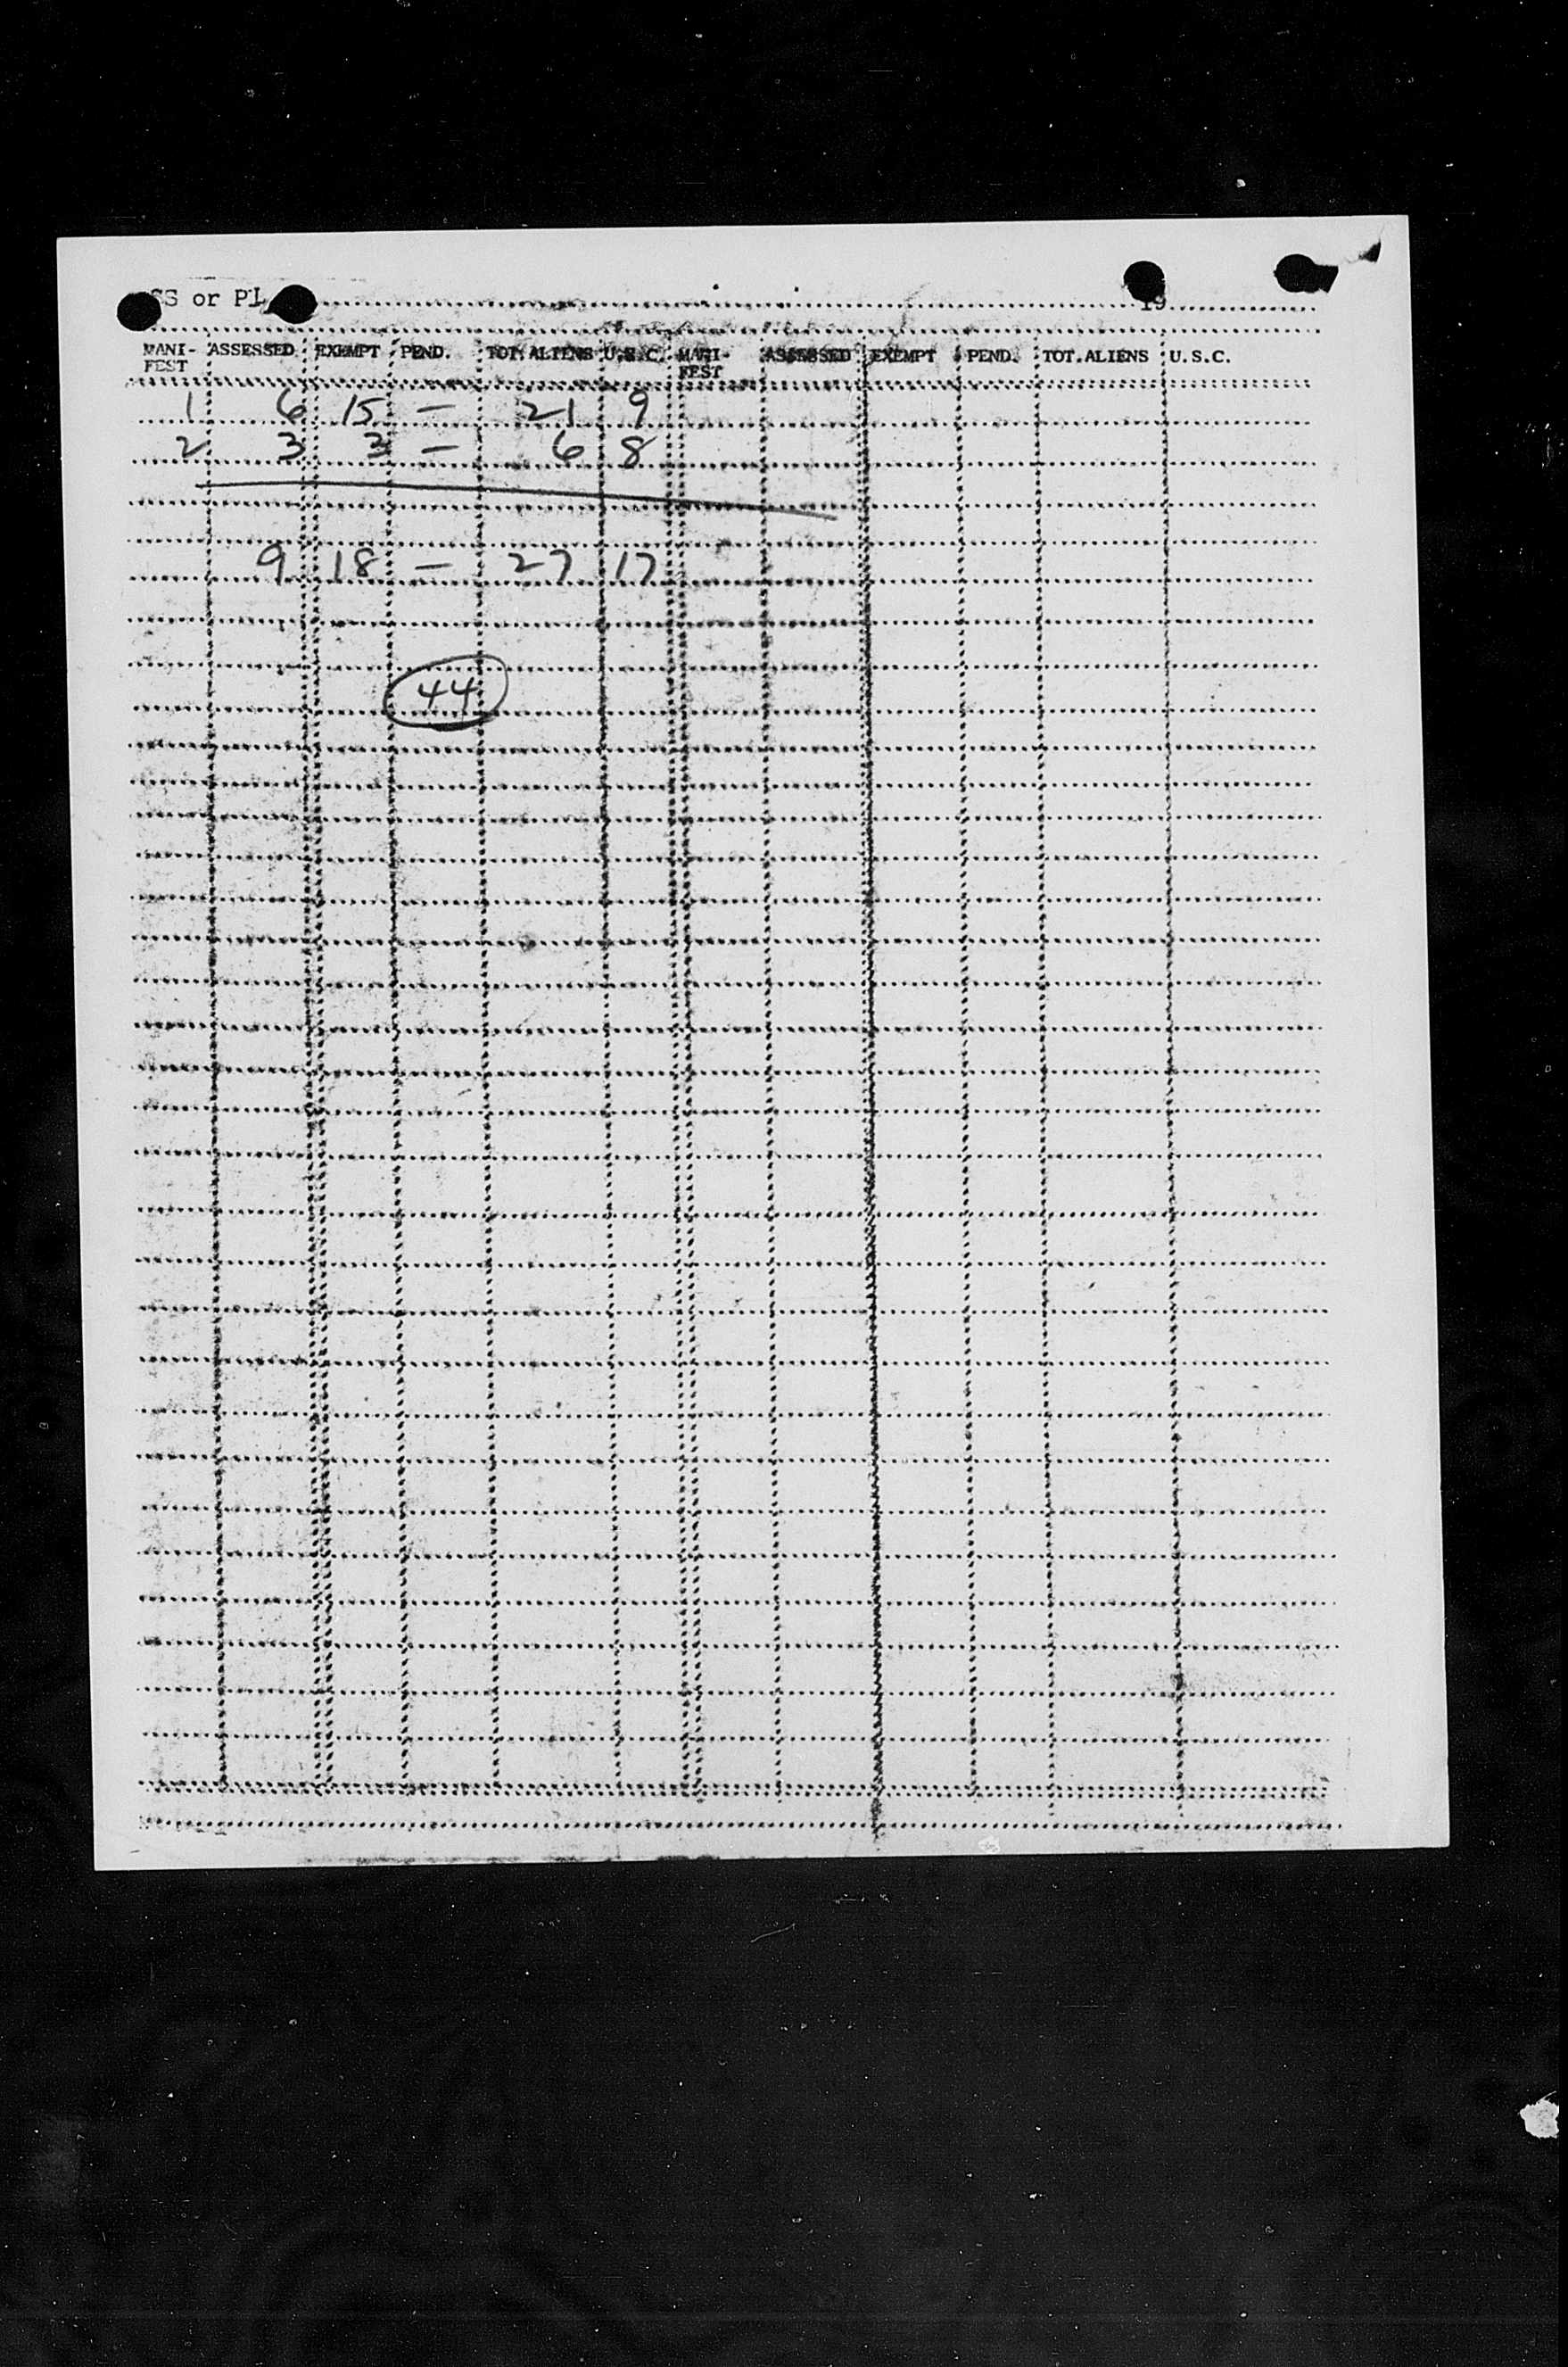 SS or PL 19
MANI- ASSESSED EXEMPT PEND. TOT. ALIENS U.S.C. MANI- ASSESSED EXEMPT PEND. TOT.ALIENS U.S.C.
FEST FEST
1 6 15 — 21 9
2 3 3 — 6 8
9 18 — 27 17
44